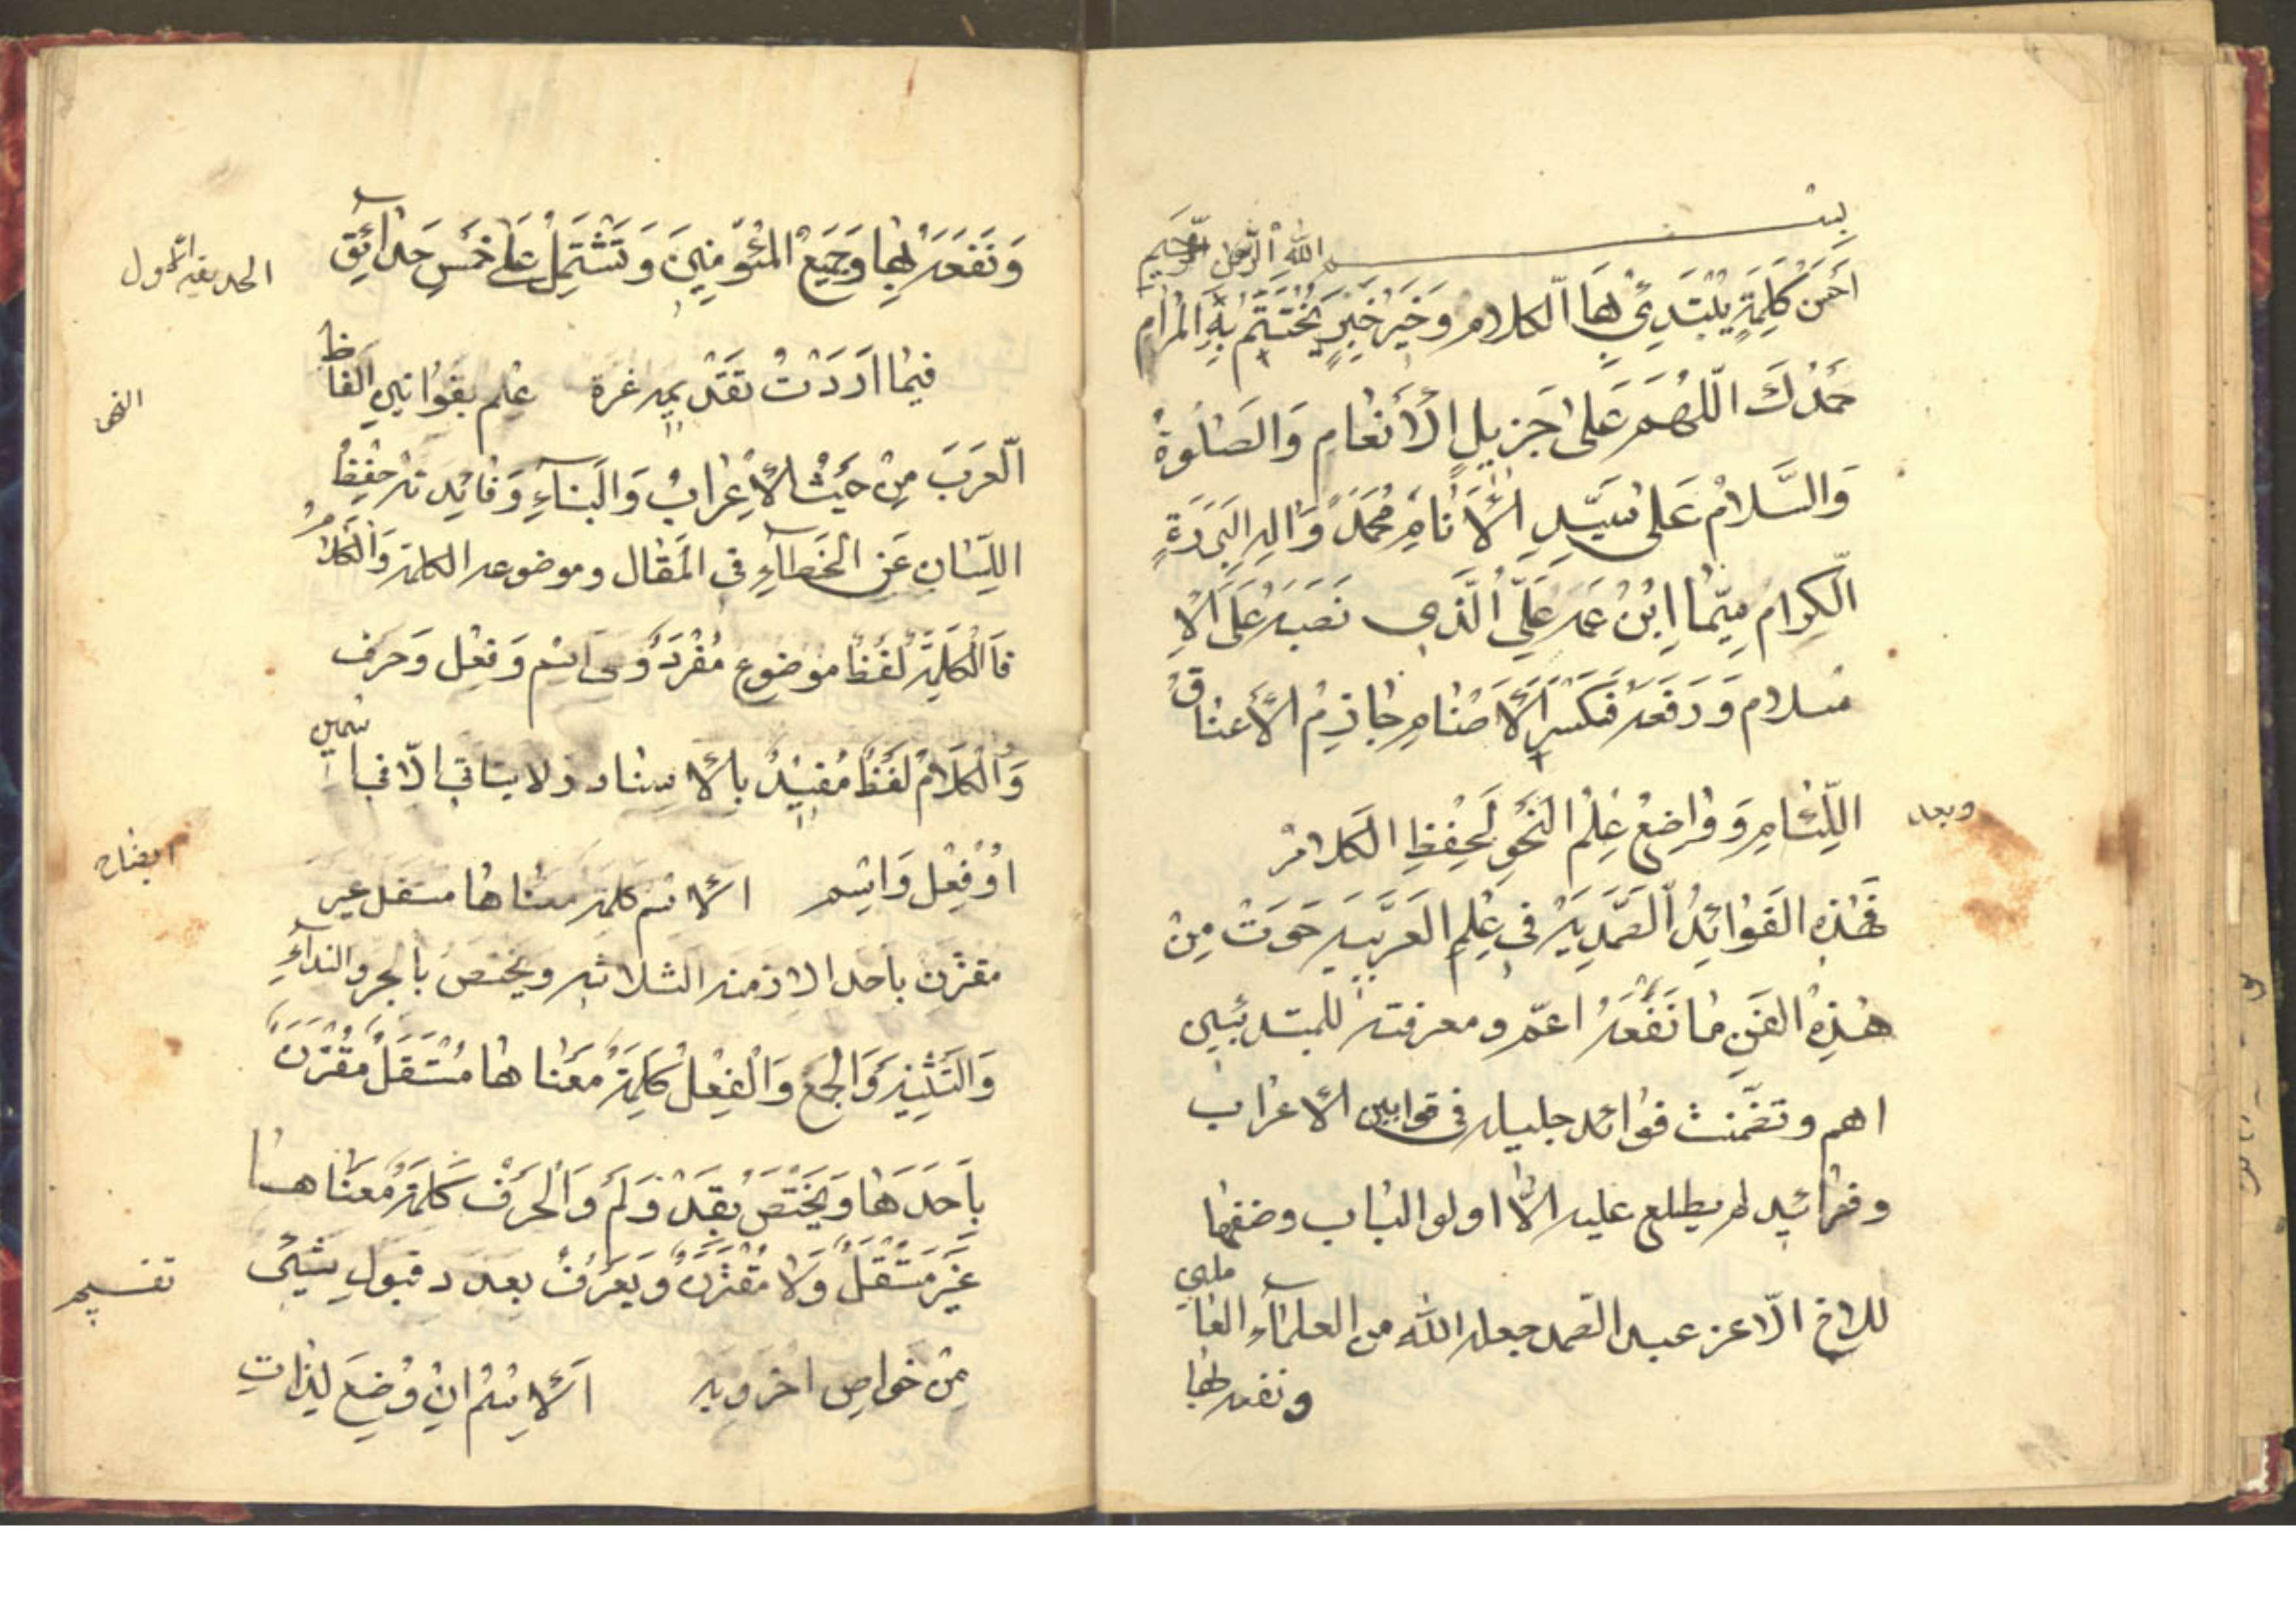 بسم الله الرحمن الرحيم
احسن كلمة يبتدئ بها الكلام وخير خبر يختتم به المرام
حمدك اللهم على جزيل الأنعام والصلوة
والسلام على سيد الأنام محمد واله البررة
الكرام سيما ابن عمه علي الذي نصبه على الا
سلام ورفعه فكسر الأصنام جاذم الأعناق
اللئام وواضع علم النحو لحفظ الكلام
وبعد
فهذه الفوائد الصمدية في علم العربية حوت من
هذه الفن ما نفعه اعم ومعرفته للمبتدئين
اهم وتضمنت فوائد جليله في قوانين الأعراب
وفرائد لم يطلع عليه الا اولو الباب وضفها
للاخ الا عز عبد الصمد جعله الله من العلماء العا
ملين
ونفعه بها
ونفعه بها وجميع المئومنين وتشتمل على خمس حدائق
الحديقة الأول
فيما اردت تقديمه غرة علم بقوانين الفاظ
النحو
العرب من حيث الأعراب والبناء وفائدته حفظ
اللسان عن الخطاء في المقال وموضوعه الكلمة والكلام
فالكلمة لفظ موضوع مفرد وهى اسم وفعل وحرف
والكلام لفظ مفيد بالأسناد ولا يتاتي الا في اسمين
او فعل واسم الأسم كلمة معناها مستقل غير
ايضاح
مقترن باحد الازمنه الثلاثه ويختص بالجر والنداء
والتثنيه والجمع والفعل كلمة معناها مستقل مقترن
باحدها ويختص بقد ولم والحرف كلمة معناها
غير مستقل ولا مقترن ويعرف بعدد قبول شيئ
تقسيم
من خواص اخرويه الأسم ان وضع لذات